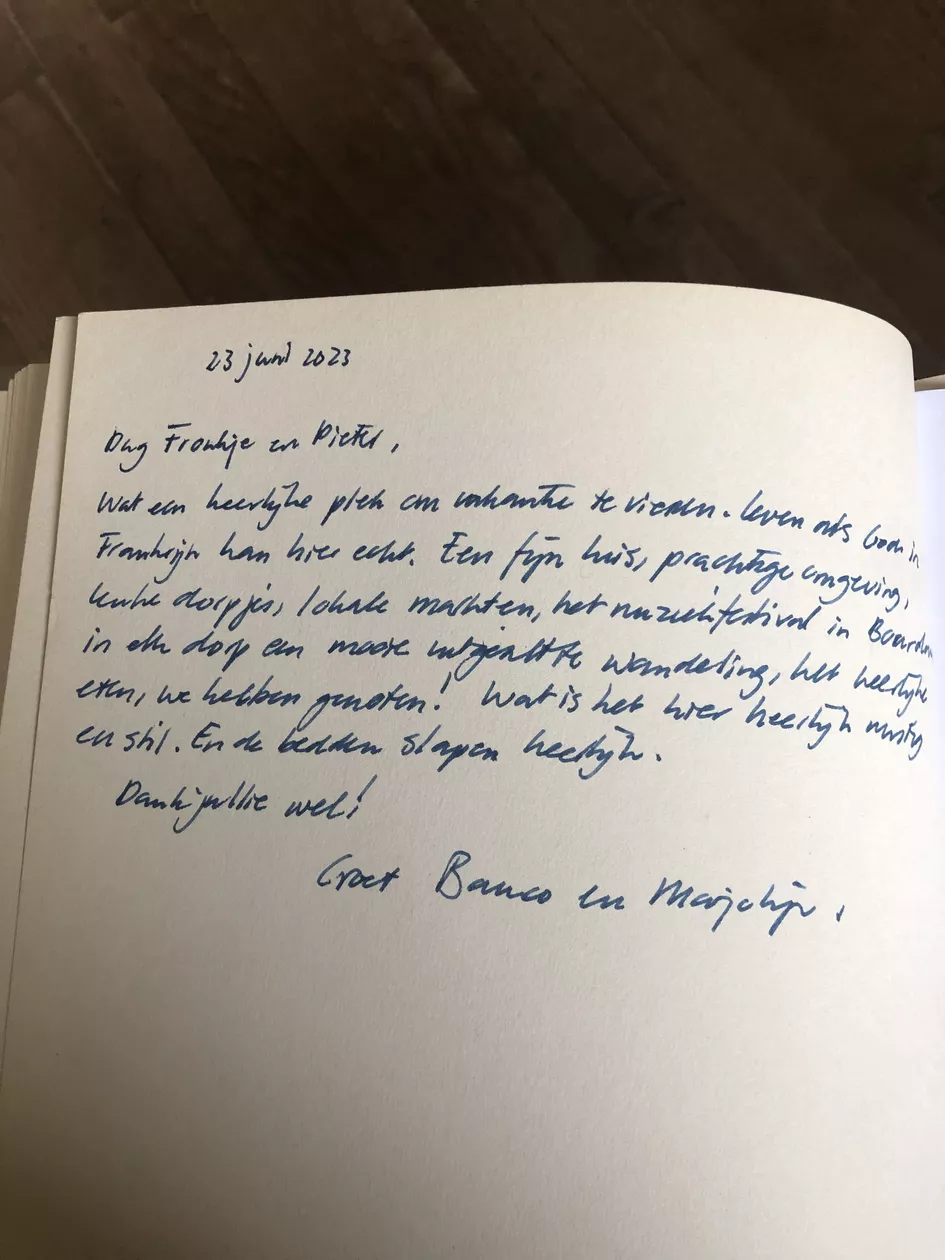 23 juni 2023
Dag Froukje en Pieter,
Wat een heerlijke plek om vakantie te vieren. Leven als God in
Frankrijk kan hier echt. Een fijn huis, prachtige omgeving,
leuke dorpjes, lokale markten, het muziekfestival in
in elk dorp een mooie uitgezette wandeling, het heerlijke
eten, we hebben genoten! Wat is het hier heerlijk rustig
en stil. En de bedden slapen heerlijk.
Dank jullie wel!
Groet Bauco en Marjolijn.